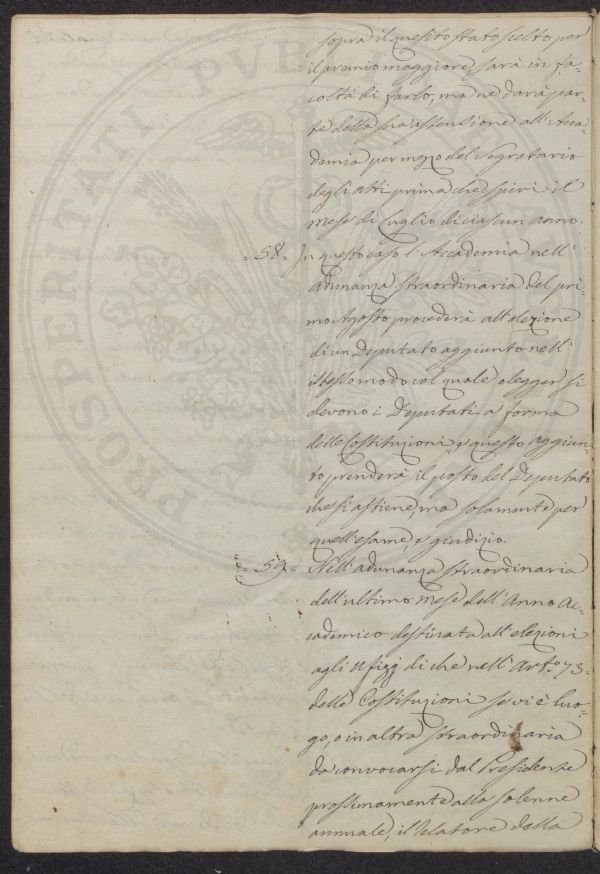 sopra il quesito stato scelto per
il premio maggiore, sarà in fa-
coltà di farlo, ma ne darà par-
te della sua astensione all'Acca-
demia per mezzo del Segretario
degli atti prima che spiri il
Mese di Luglio di ciascun anno.
= 58 = In questo caso l'Accademia nell'
Adunanza straordinaria del pri-
mo Agosto procederà all'elezione
di un Deputato aggiunto nell'
istesso modo col quale elegger si
devono i Deputati a forma
delle Costituzioni, e questo aggiun-
to prenderà il posto del Deputato
che si astiene, ma solamente per
quell'esame, e giudizio.
= 59 = Nell'adunanza straordinaria
dell'ultimo Mese dell'Anno Ac-
cademico destinata all'elezioni
agli Ufizj di che nell'Arto. 73.
delle Costituzioni se vi è luo-
go, o in altra straordinaria
da convocarsi dal Presidente
prossimamente alla solenne
annuale, il Relatore della
PROSPERITATI PVB